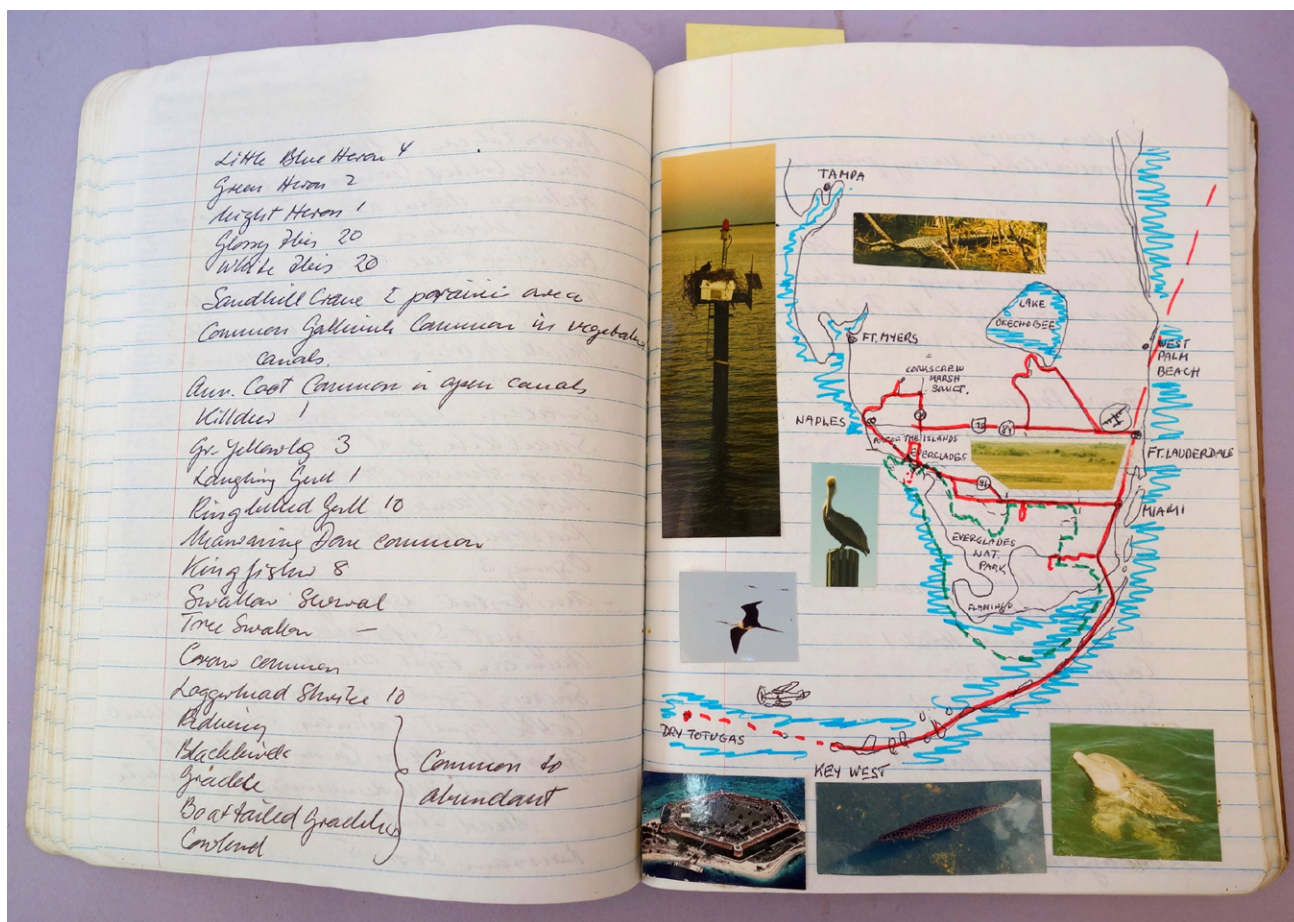 Little Blue Heron 4
Green Heron 2
Night Heron 1
Glossy Ibis 20
White Ibis 20
Sandhill Crane 2 prairie area
Common Gallinule Common in
canals
Am. Coot Common in open canals
Killdeer 1
Gr. Yellowleg 3
Laughing Gull 1
Ringbilled Gull 10
Mourning Dove common
Kingfisher 8
Swallow Several
Tree Swallow —
Crow common
Loggerhead Shrike 10
Redwing
Blackbirds
Grackle
Boattailed Grackles
Cowbird
Common to
abundant
TAMPA
LAKE
OKECHOBEE
FT. MYERS
WEST
PALM
BEACH
CORKSCREW
MARSH
SANCT.
NAPLES
75
84
THE ISLANDS
EVERGLADES
FT. LAUDERDALE
MIAMI
EVERGLADES
NAT.
PARK
FLAMINGO
DRY TOTUGAS
KEY WEST